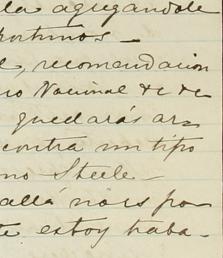 la agregandole
ortunos —
l, recomendacion
io Nacional & de
quedarás ar-
contra un tipo
no Steele —
allá ireis po-
te estoy traba-